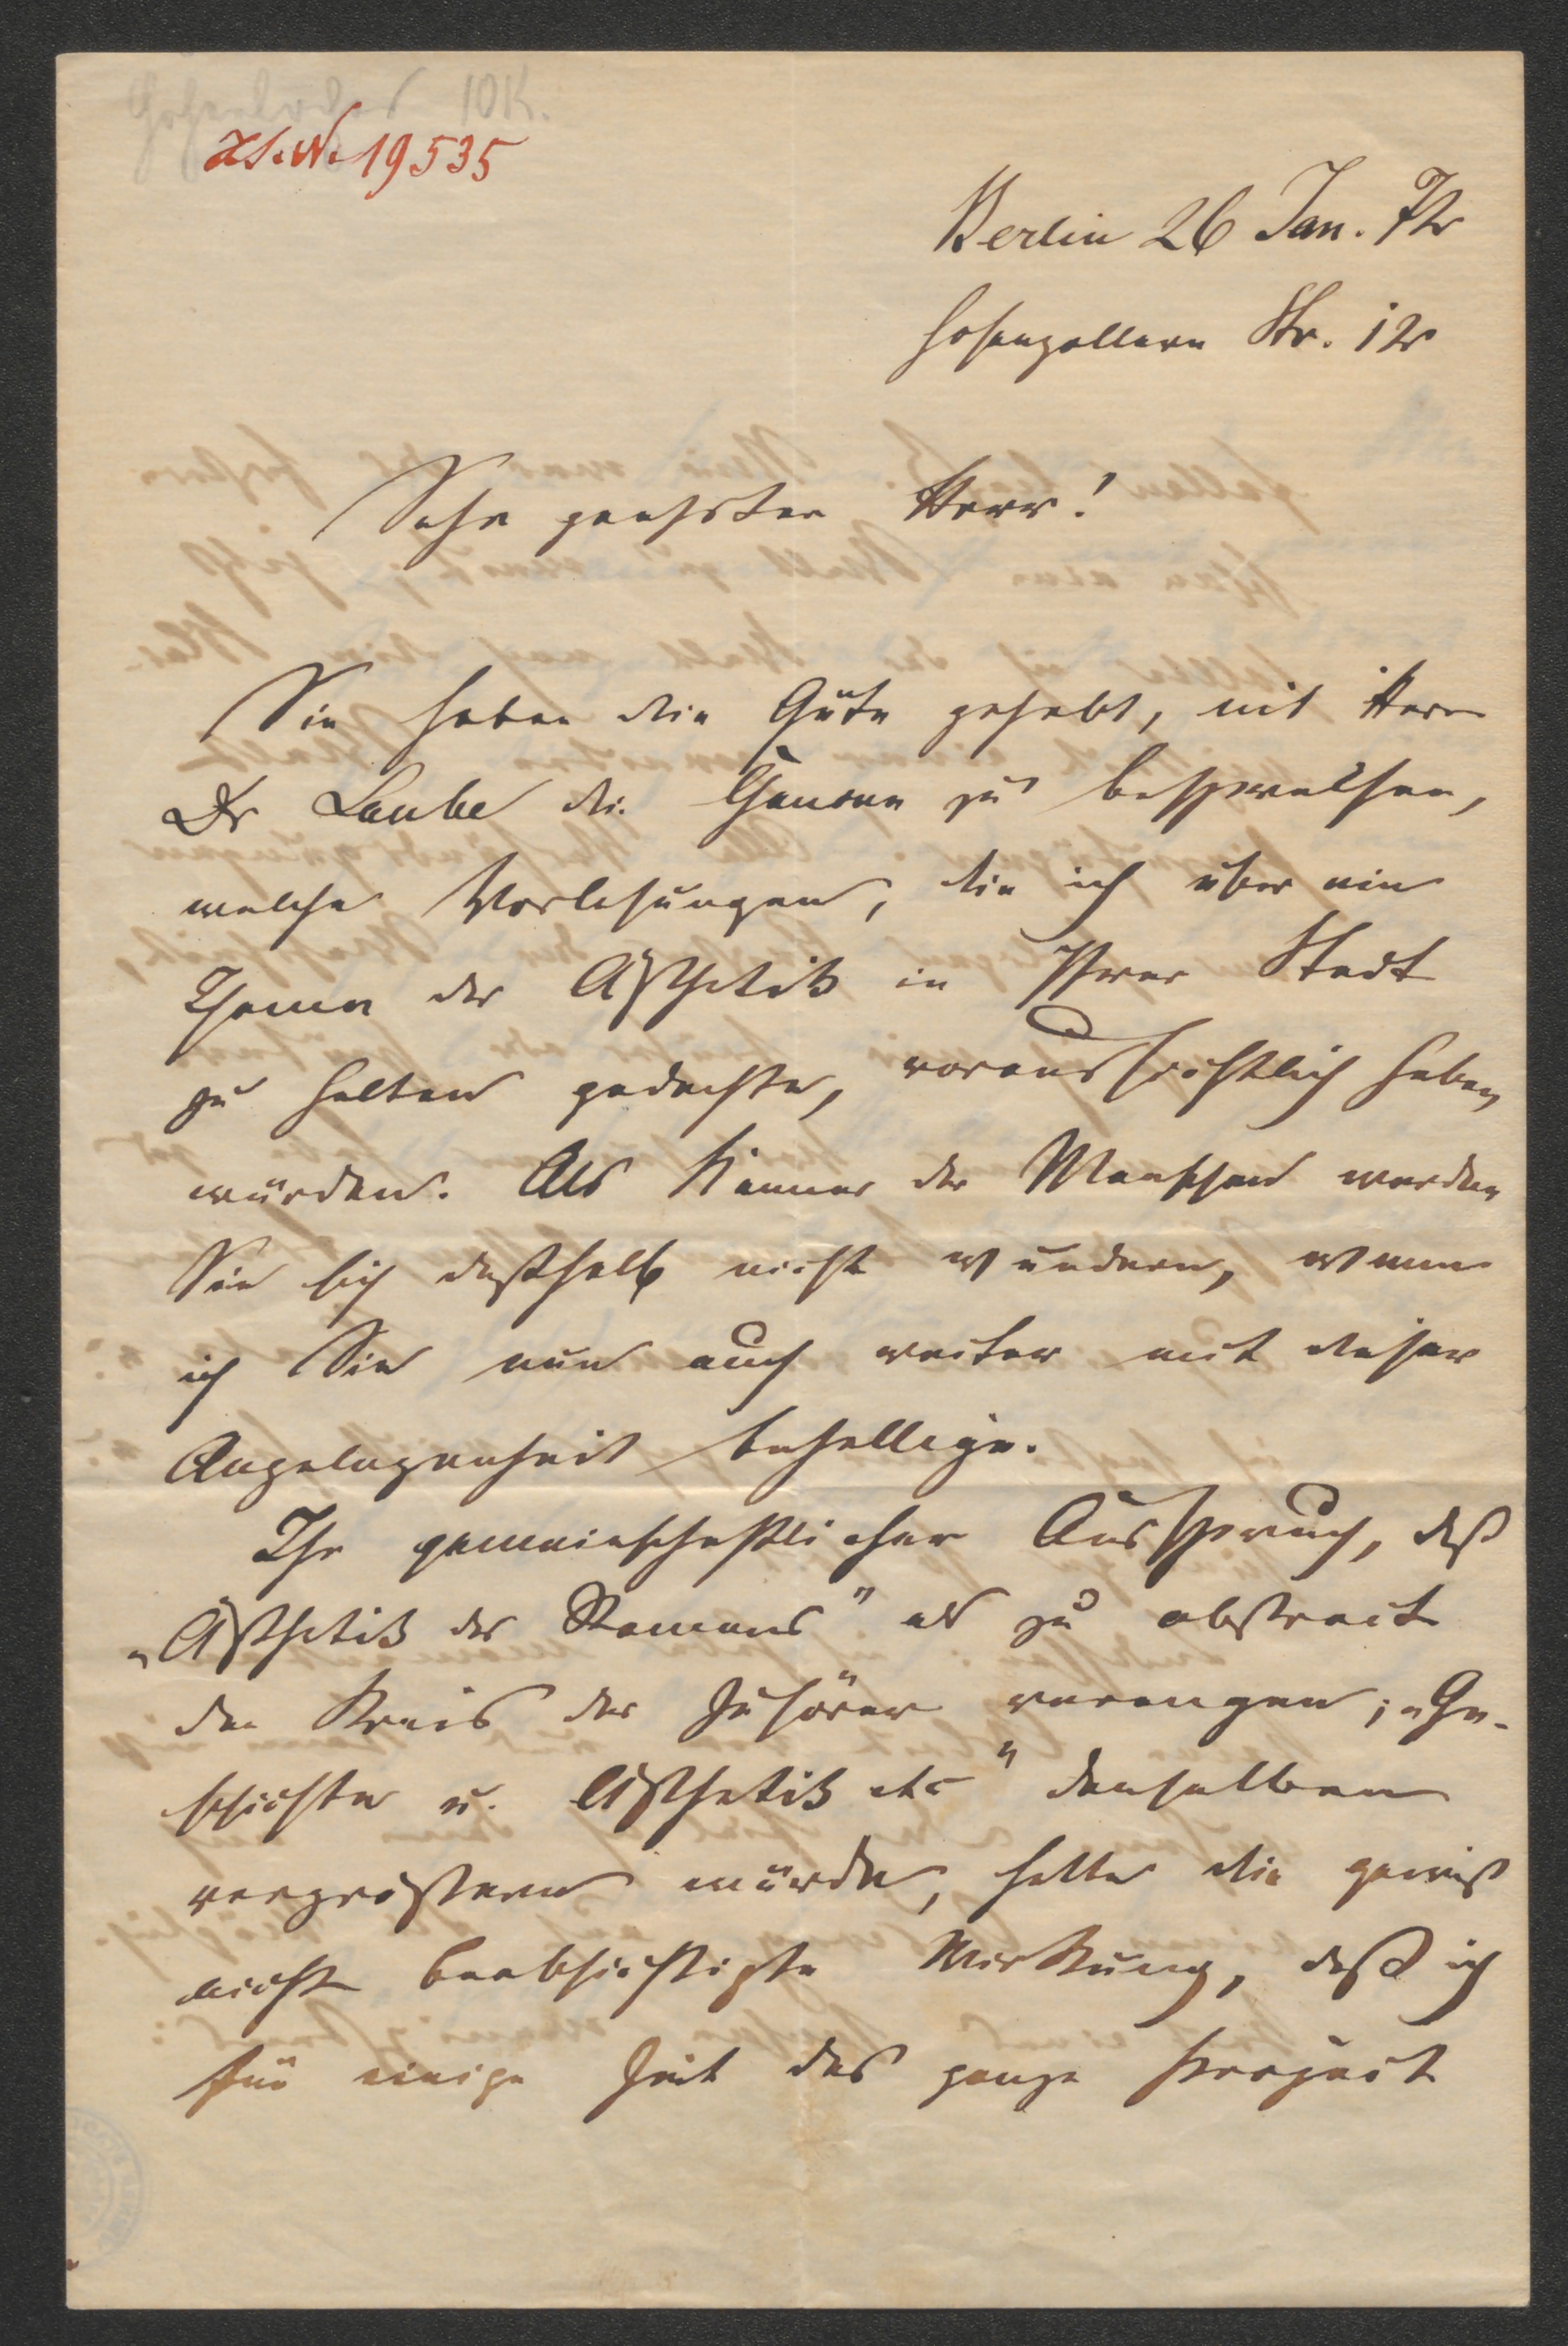 Z.I.N. 19535
Berlin 26 Jan. 72
Hohenzollern Str. 12
Sehr geehrter Herr!
Sie haben die Güte gehabt, mit Herrn
Dr Laube die Chancen zu besprechen,
welche Vorlesungen, die ich über ein
Thema der Ästhetik in Ihrer Stadt
zu halten gedachte, voraussichtlich haben
würden. Als Kenner der Menschen werden
Sie sich deßhalb nicht wundern, wenn
ich Sie nun auch weiter mit dieser
Angelegenheit behellige.
Ihr gemeinschaftlicher Ausspruch, daß
„Ästhetik des Romans" als zu abstract
den Kreis der Zuhörer verengen; „Ge-
schichte u. Ästhetik etc" denselben
vergrößern würde, hatte die gewiß
nicht beabsichtigte Wirkung, daß ich
für einige Zeit das ganze Project